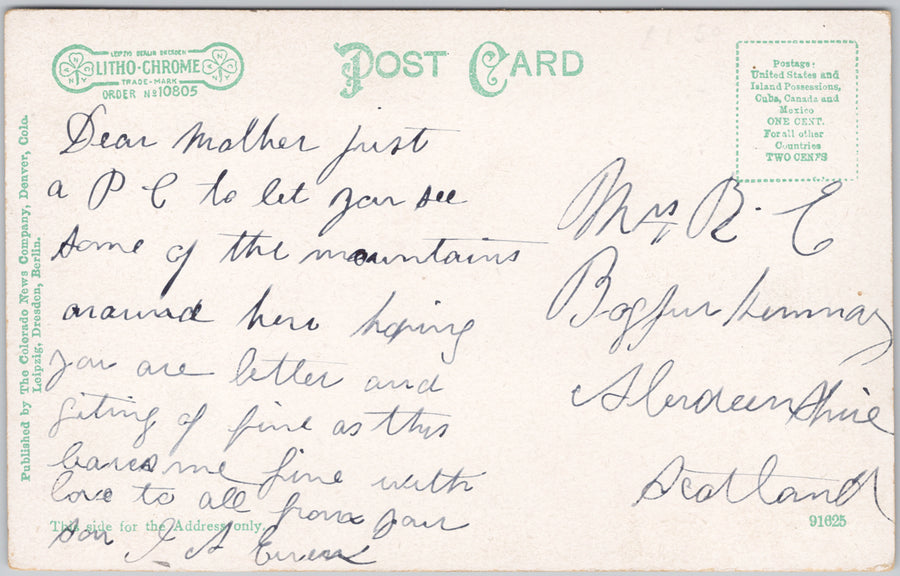 LEIPZIG BERLIN DRESDEN
LITHO-CHROME
TRADE-MARK
ORDER No 10805
POST CARD
Postage:
United States and
Island Possessions,
Cuba, Canada and
Mexico
ONE CENT.
For all other
Countries
TWO CENTS
Published by The Colorado News Company, Denver, Colo.
Leipzig, Dresden, Berlin.
Dear Mother just
a P C to let you see
some of the mountains
around here hoping
you are better and
giting of fine as this
leaves me fine with
love to all from your
son J A Ewen
Mrs B. E
Bogfur Kemnay
Aberdeen Shire
Scotland
This side for the Address only.
91625